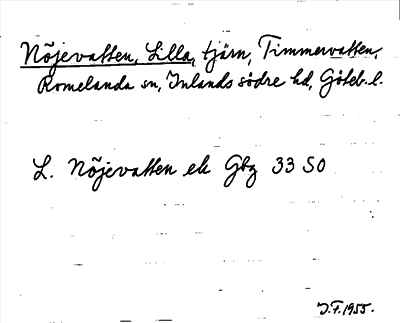 Nõjevatten, Lilla, tjärn, Timmervatten,
Romelanda sn, Inlands södre hd, Göteb. l.
L. Nõjevatten ek Gbg 33 SO
J.F. 1955.